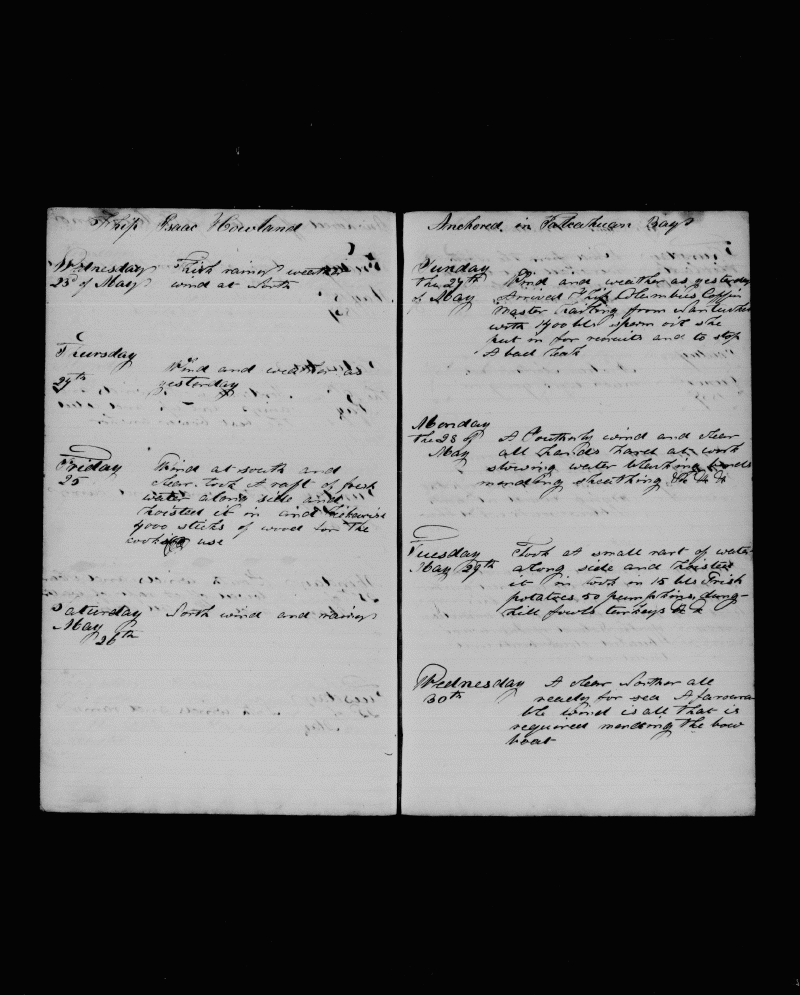 Ship Isaac Howland
Wednesday Thick rainy weather
23d of May wind at North
Thursday
24th Wind and weather as
yesterday
Friday Wind at south and
25 clear took A raft of fresh
water along side and
hoisted it in and likewise
4000 sticks of wood for the
cooks use
Saturday North wind and rainy
May
26th
Anchored in Talcahuan Bay
Sunday
the 27th Wind and weather as yesterday
of May Arrived Ship Columbus Coffin
master hailing from Nantucket
with 1400 bls sperm oil she
put in for recruits and to stop
A bad leak
Monday
the 28 of A Southerly wind and clear
May all hands hard at work
stowing water
mending sheathing &c & &
Tuesday Took A small raft of water
May 29th along side and hoisted
it in took in 15 bls Irish
potatoes 50 pumpkins, dung-
hill fowls turkeys & &
Wednesday A clear Norther all
30th ready for sea A favoura
ble wind is all that is
required mending the bow
boat